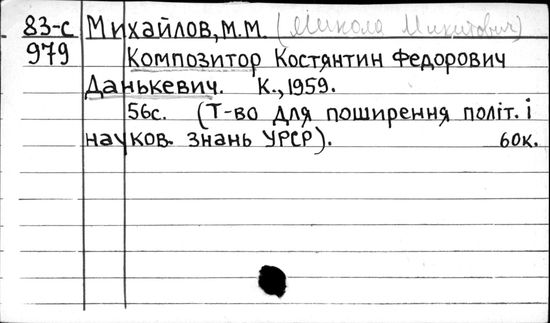 83-с Михайлов, М.М. (Микола Микитович)
979 Композитор Костянтин Федорович
Данькевич. К., 1959.
56с. (Т-во для поширення політ. і
науков. знань УРСР). 60к.